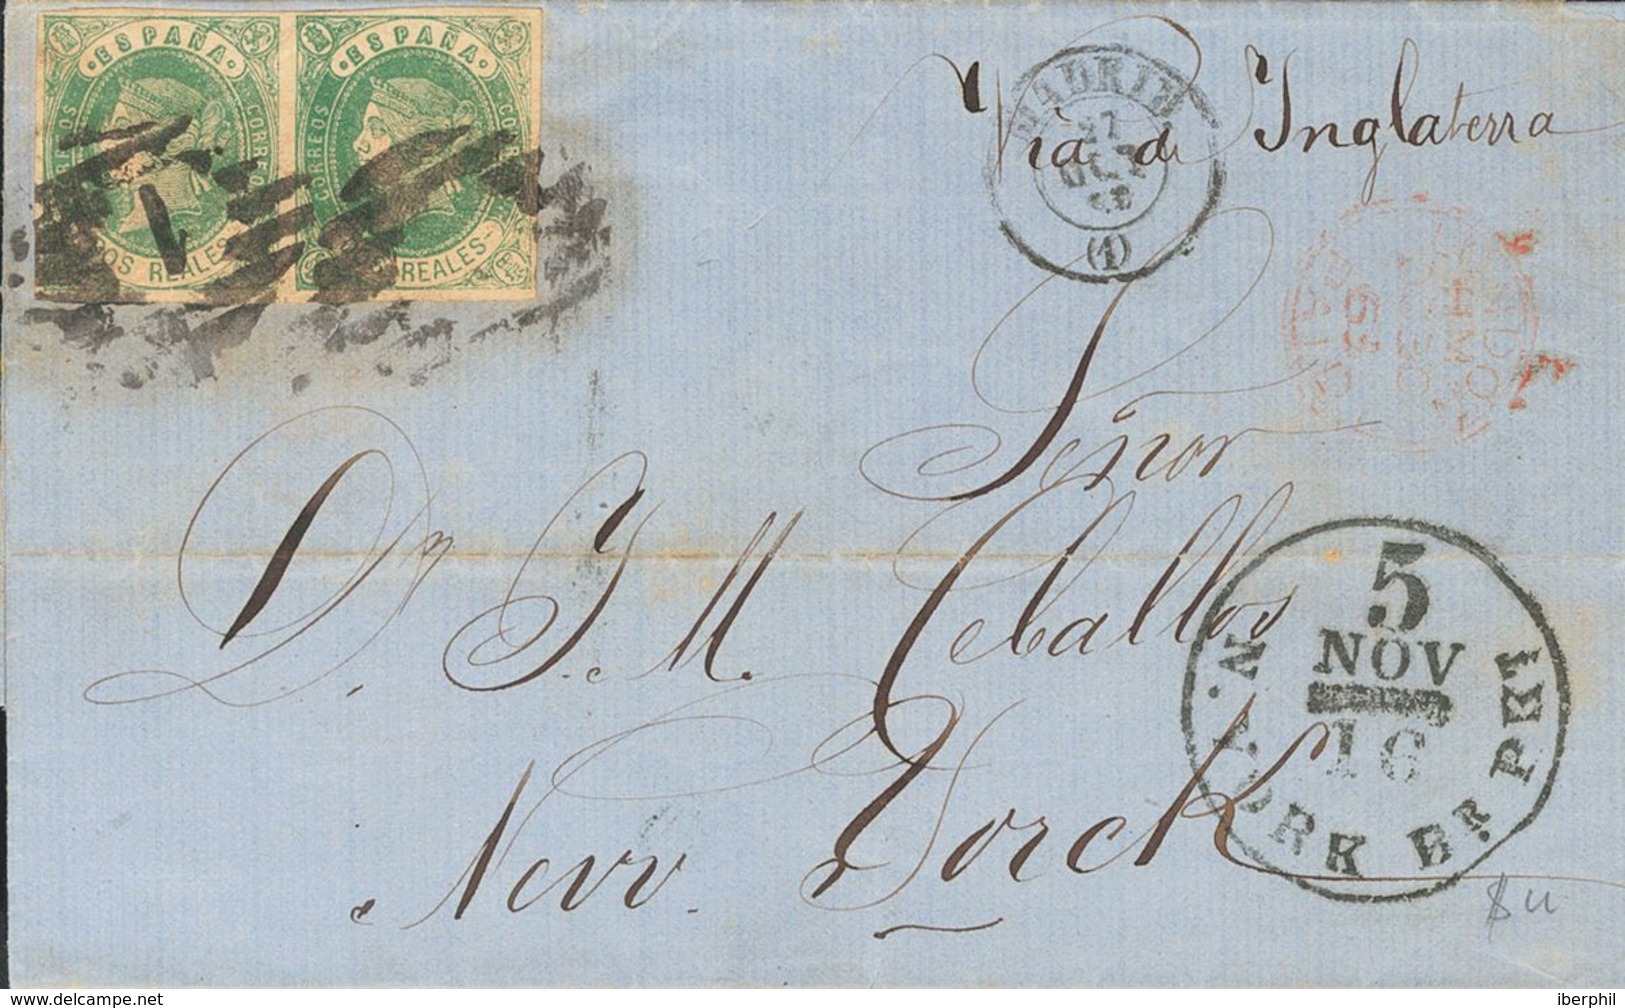 ESPAÑA
CORREOS
CORREOS
DOS REALES
ESPAÑA
CORREOS
CORREOS
REALES
MADRID
27
OCT
(1)
Via de Inglaterra
Señor
Dn J. M. Ceballos
New Yorck
5
NOV
16
N. YORK Br. PKT
iberphil